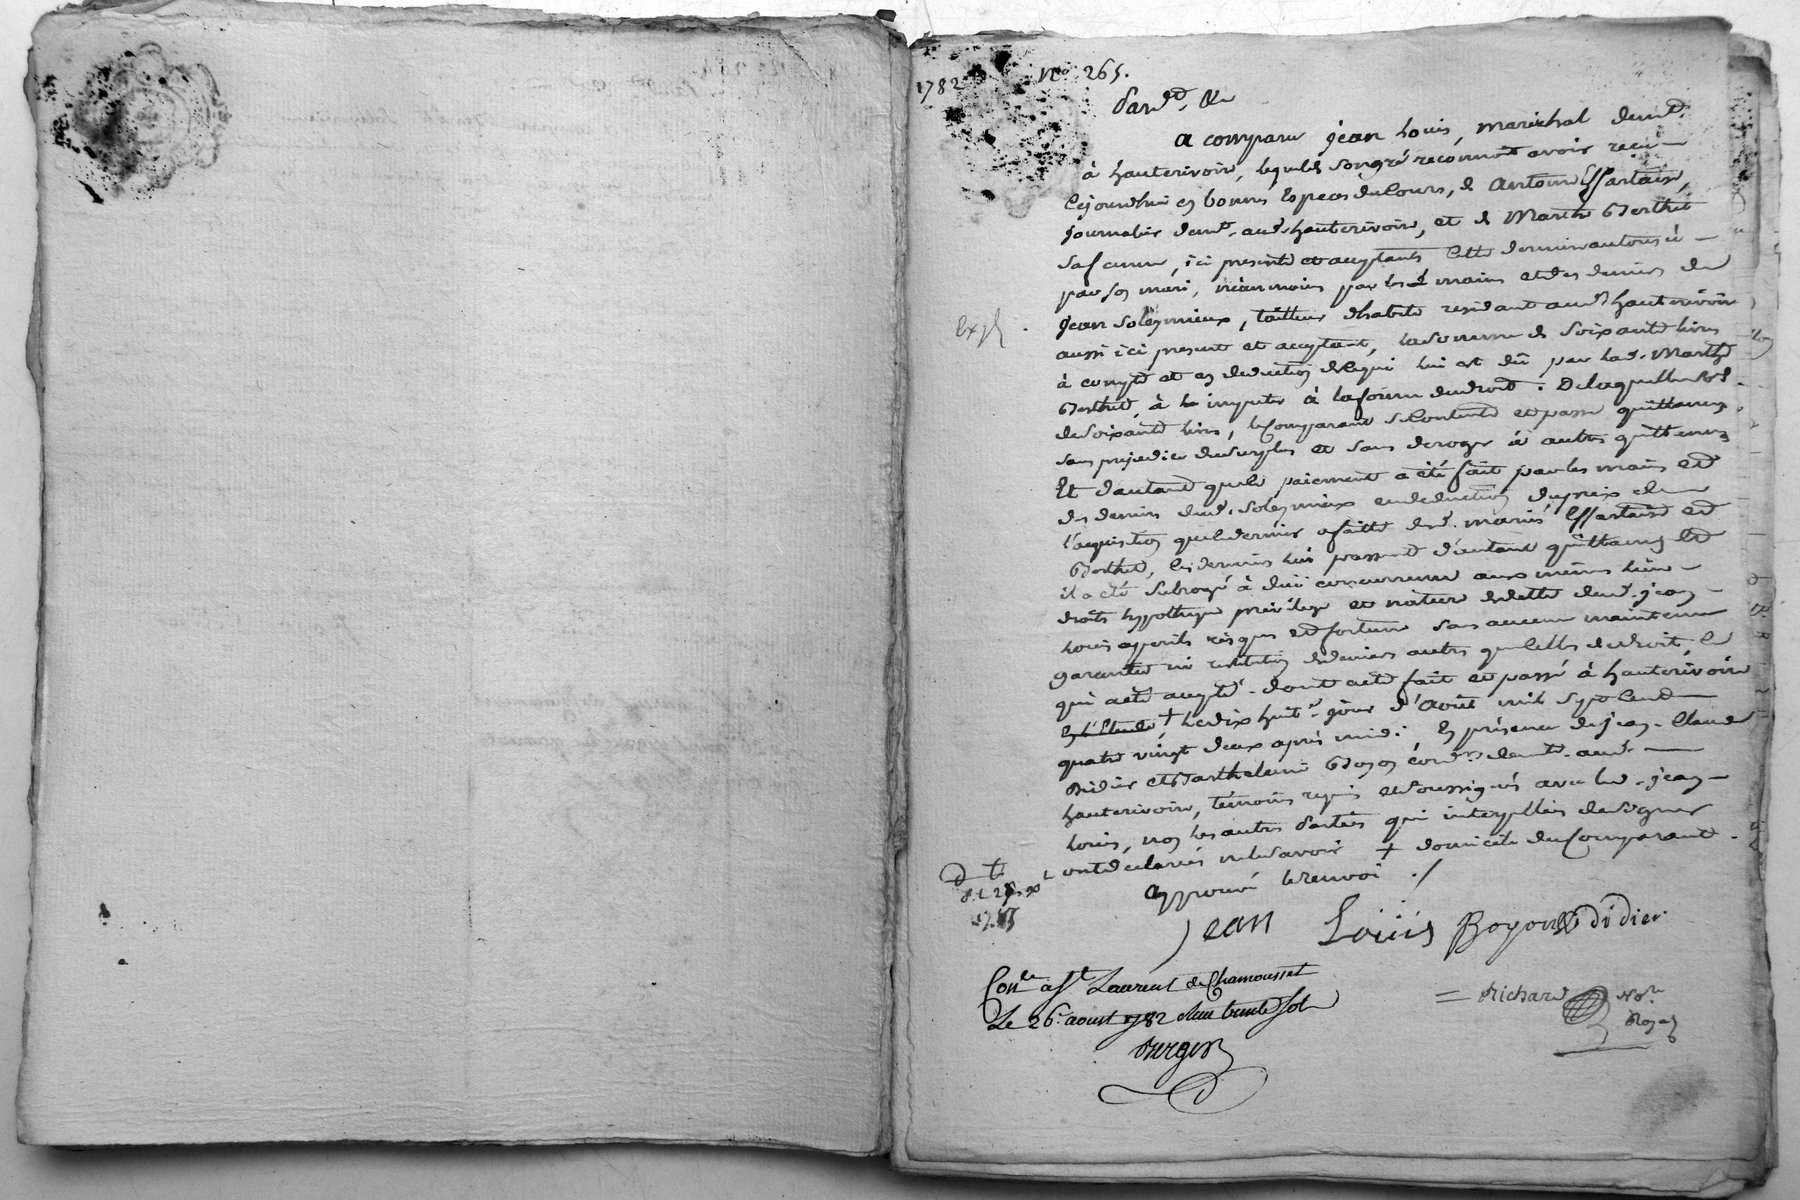 1782
No. 265.
Pard.t &c
a comparu jean Louis, maréchal demt.
à hauterivoire, lequel de son gré reconnoit avoir recu
cejourdhui en bonnes Especes du Cours, de Antoine Essartaise,
journalier demt. aud. hauterivoire, et de Marthe Berthet
sa femme, ici presents et acceptants cette derniere autorisée
par son mari, néanmoins par les mains et des deniers de
Jean Soleymieux, tailleur dhabits residant aud. hauterivoire
aussi ici present et acceptant, la somme de soixante livres
à compte et en deduction de ce qui lui est dû par lad. Marthe
Berthet, à imputer à la forme du droit. De laquelle
de soixante livres, le Comparant se Contente et passe quittance,
sans prejudice du surplus et sans deroger à autres quittances
Et d'autant que le paiement a été fait par les mains et
des deniers dud. Soleymieux en deduction du prix de
l'acquisition que ce dernier a faitte desd. mariés Essartaise et
Berthet, ces derniers lui passent d'autant quittance et
il a été subrogé à due concurrence aux mêmes lieu
droits hypotheque privilege et nature de dette dud. jean
Louis a perils risques et fortune sans aucune maintenue
garantie ni restitution de deniers autres que celles de droit, ce
qui a été accepté. dont acte fait et passé à hauterivoire
En l'Etude + Le dix huit.e jour d'Août mil sept Cent
quatre vingt deux après midi. En présence de jean-Claude
Didier et Barthelemi Boyon cord.rs demt. aud.
hauterivoire, témoins requis et soussignés avec led. jean
Louis, non les autres Parties qui interpellées de signer
ont déclarées ne le savoir + domicile du Comparant
approuvé le renvoi ./
jean Louis Boyon didier
Con.le a St Laurent de Chamousset
Le 26. aoust 1782 Reçu trente sols
= Richard No.re
Royal